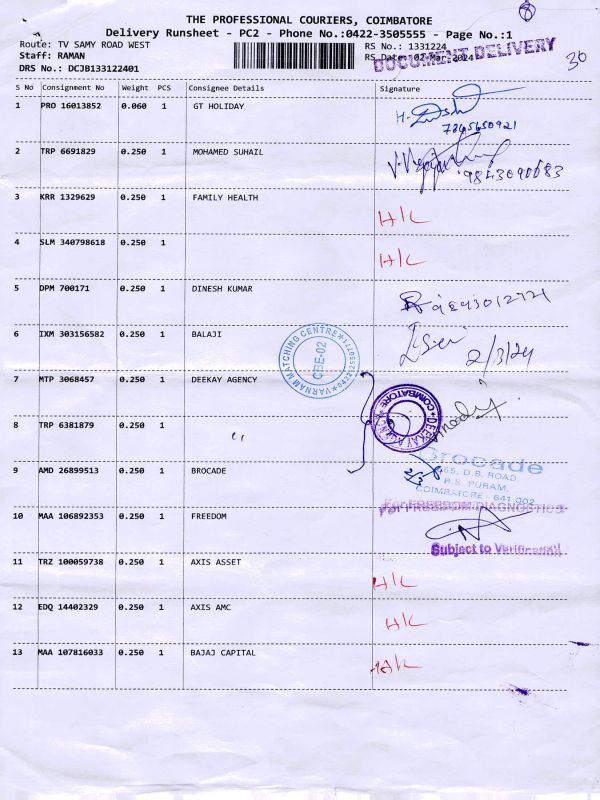 8
THE PROFESSIONAL COURIERS, COIMBATORE
Delivery Runsheet - PC2 - Phone No.:0422-3505555 - Page No.:1
Route: TV SAMY ROAD WEST
Staff: RAMAN
DRS No.: DCJB133122401
RS No.: 1331224
RS Date: 02-Mar-2024
DOCUMENT DELIVERY
30
S No Consignment No Weight PCS Consignee Details Signature
1 PRO 16013852 0.060 1 GT HOLIDAY
2 TRP 6691829 0.250 1 MOHAMED SUHAIL
3 KRR 1329629 0.250 1 FAMILY HEALTH H/C
4 SLM 340798618 0.250 1 H/C
5 DPM 700171 0.250 1 DINESH KUMAR
6 IXM 303156582 0.250 1 BALAJI 2/3/24
VARNAM MATCHING CENTRE
CBE-02
7 MTP 3068457 0.250 1 DEEKAY AGENCY
DEEKAY AGENCY COIMBATORE
8 TRP 6381879 0.250 1 "
9 AMD 26899513 0.250 1 BROCADE 2/3
Brocade
D.B. ROAD
R.S. PURAM,
COIMBATORE - 641 002
10 MAA 106892353 0.250 1 FREEDOM
For FREEDOM DIAGNOSTICS
Subject to Verification
11 TRZ 100059738 0.250 1 AXIS ASSET H/C
12 EDQ 14402329 0.250 1 AXIS AMC H/C
13 MAA 107816033 0.250 1 BAJAJ CAPITAL H/C